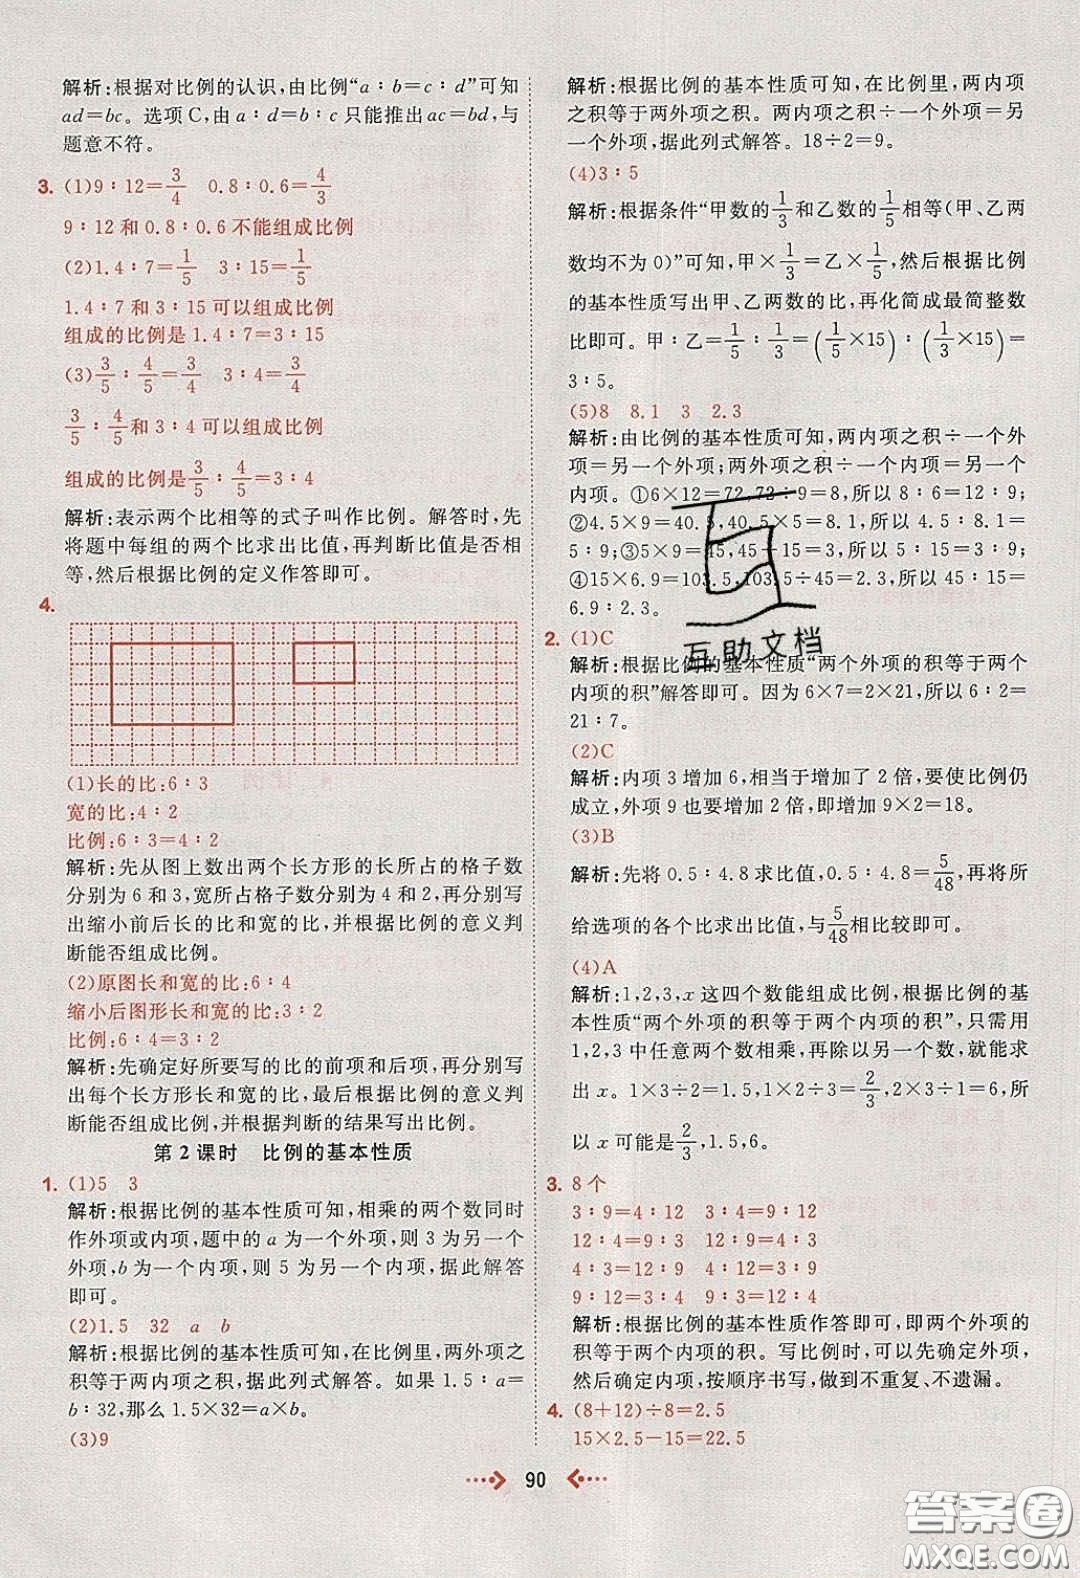 解析:根据对比例的认识,由比例“a∶b=c∶d”可知
ad=bc。选项C,由a∶d=b∶c只能推出ac=bd,与
题意不符。
3. (1)9∶12=3/4 0.8∶0.6=4/3
9∶12和0.8∶0.6不能组成比例
(2)1.4∶7=1/5 3∶15=1/5
1.4∶7和3∶15可以组成比例
组成的比例是1.4∶7=3∶15
(3)3/5∶4/5=3/4 3∶4=3/4
3/5∶4/5和3∶4可以组成比例
组成的比例是3/5∶4/5=3∶4
解析:表示两个比相等的式子叫作比例。解答时,先
将题中每组的两个比求出比值,再判断比值是否相
等,然后根据比例的定义作答即可。
4.
(1)长的比:6∶3
宽的比:4∶2
比例:6∶3=4∶2
解析:先从图上数出两个长方形的长所占的格子数
分别为6和3,宽所占格子数分别为4和2,再分别写
出缩小前后长的比和宽的比,并根据比例的意义判
断能否组成比例。
(2)原图长和宽的比:6∶4
缩小后图形长和宽的比:3∶2
比例:6∶4=3∶2
解析:先确定好所要写的比的前项和后项,再分别写
出每个长方形长和宽的比,最后根据比例的意义判
断能否组成比例,并根据判断的结果写出比例。
第2课时 比例的基本性质
1. (1)5 3
解析:根据比例的基本性质可知,相乘的两个数同时
作外项或内项,题中的a为一个外项,则3为另一个
外项,b为一个内项,则5为另一个内项,据此解答
即可。
(2)1.5 32 a b
解析:根据比例的基本性质可知,在比例里,两外项之
积等于两内项之积,据此列式解答。如果1.5∶a=
b∶32,那么1.5×32=a×b。
(3)9
解析:根据比例的基本性质可知,在比例里,两内项
之积等于两外项之积。两内项之积÷一个外项=另
一个外项,据此列式解答。18÷2=9。
(4)3∶5
解析:根据条件“甲数的1/3和乙数的1/5相等(甲、乙两
数均不为0)”可知,甲×1/3=乙×1/5,然后根据比例
的基本性质写出甲、乙两数的比,再化简成最简整数
比即可。甲∶乙=1/5∶1/3=(1/5×15)∶(1/3×15)=
3∶5。
(5)8 8.1 3 2.3
解析:由比例的基本性质可知,两内项之积÷一个外
项=另一个外项;两外项之积÷一个内项=另一个
内项。①6×12=72,72÷9=8,所以8∶6=12∶9;
②4.5×9=40.5,40.5×5=8.1,所以4.5∶8.1=
5∶9;③5×9=45,45÷15=3,所以5∶15=3∶9;
④15×6.9=103.5,103.5÷45=2.3,所以45∶15=
6.9∶2.3。
2. (1)C
解析:根据比例的基本性质“两个外项的积等于两个
内项的积”解答即可。因为6×7=2×21,所以6∶2=
21∶7。
(2)C
解析:内项3增加6,相当于增加了2倍,要使比例仍
成立,外项9也要增加2倍,即增加9×2=18。
(3)B
解析:先将0.5∶4.8求比值,0.5∶4.8=5/48,再将所
给选项的各个比求出比值,与5/48相比较即可。
(4)A
解析:1,2,3,x这四个数能组成比例,根据比例的基
本性质“两个外项的积等于两个内项的积”,只需用
1,2,3中任意两个数相乘,再除以另一个数,就能求
出x。1×3÷2=1.5,1×2÷3=2/3,2×3÷1=6,所
以x可能是2/3,1.5,6。
3. 8个
3∶9=4∶12 3∶4=9∶12
12∶4=9∶3 12∶9=4∶3
4∶3=12∶9 4∶12=3∶9
9∶12=3∶4 9∶3=12∶4
解析:根据比例的基本性质作答即可,即两个外项的
积等于两个内项的积。写比例时,可以先确定外项,
然后确定内项,按顺序书写,做到不重复、不遗漏。
4. (8+12)÷8=2.5
15×2.5-15=22.5
90
互助文档
答案圈
MXQE.COM